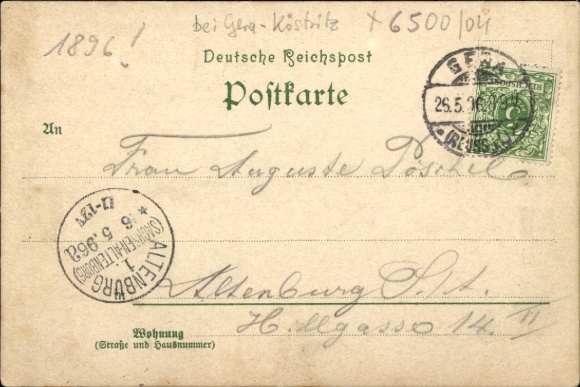 1896!
bei Gera-Köstritz
+6500/04
Deutsche Reichspost
Postkarte
GERA
26.5.96
(REUSS)
An
Frau Auguste Pöschel
11-12V
* 6 5.96
(SACHSEN-ALTENBURG)
1
ALTENBURG
in
Altenburg S/A.
Hillgasse 14. II
Wohnung
(Straße und Hausnummer)